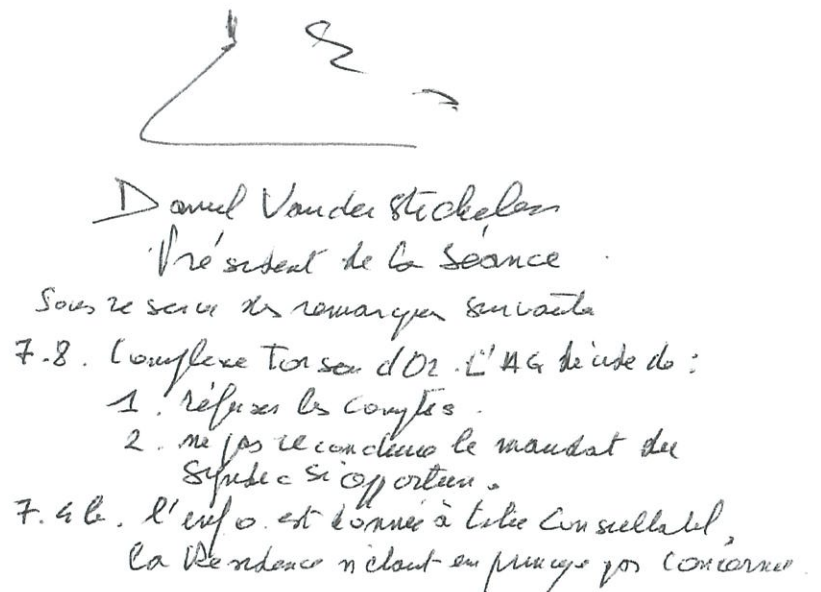 Daniel Vanderstichelen
Président de la Séance
Sous réserve des remarques suivantes
7.8. Complexe Toison d'Or. L'AG décide de :
1. réfuser les comptes.
2. ne pas reconduire le mandat du
Syndic si opportun.
7.4b. l'info est donnée à titre
la Résidence n'étant en principe pas concernée.